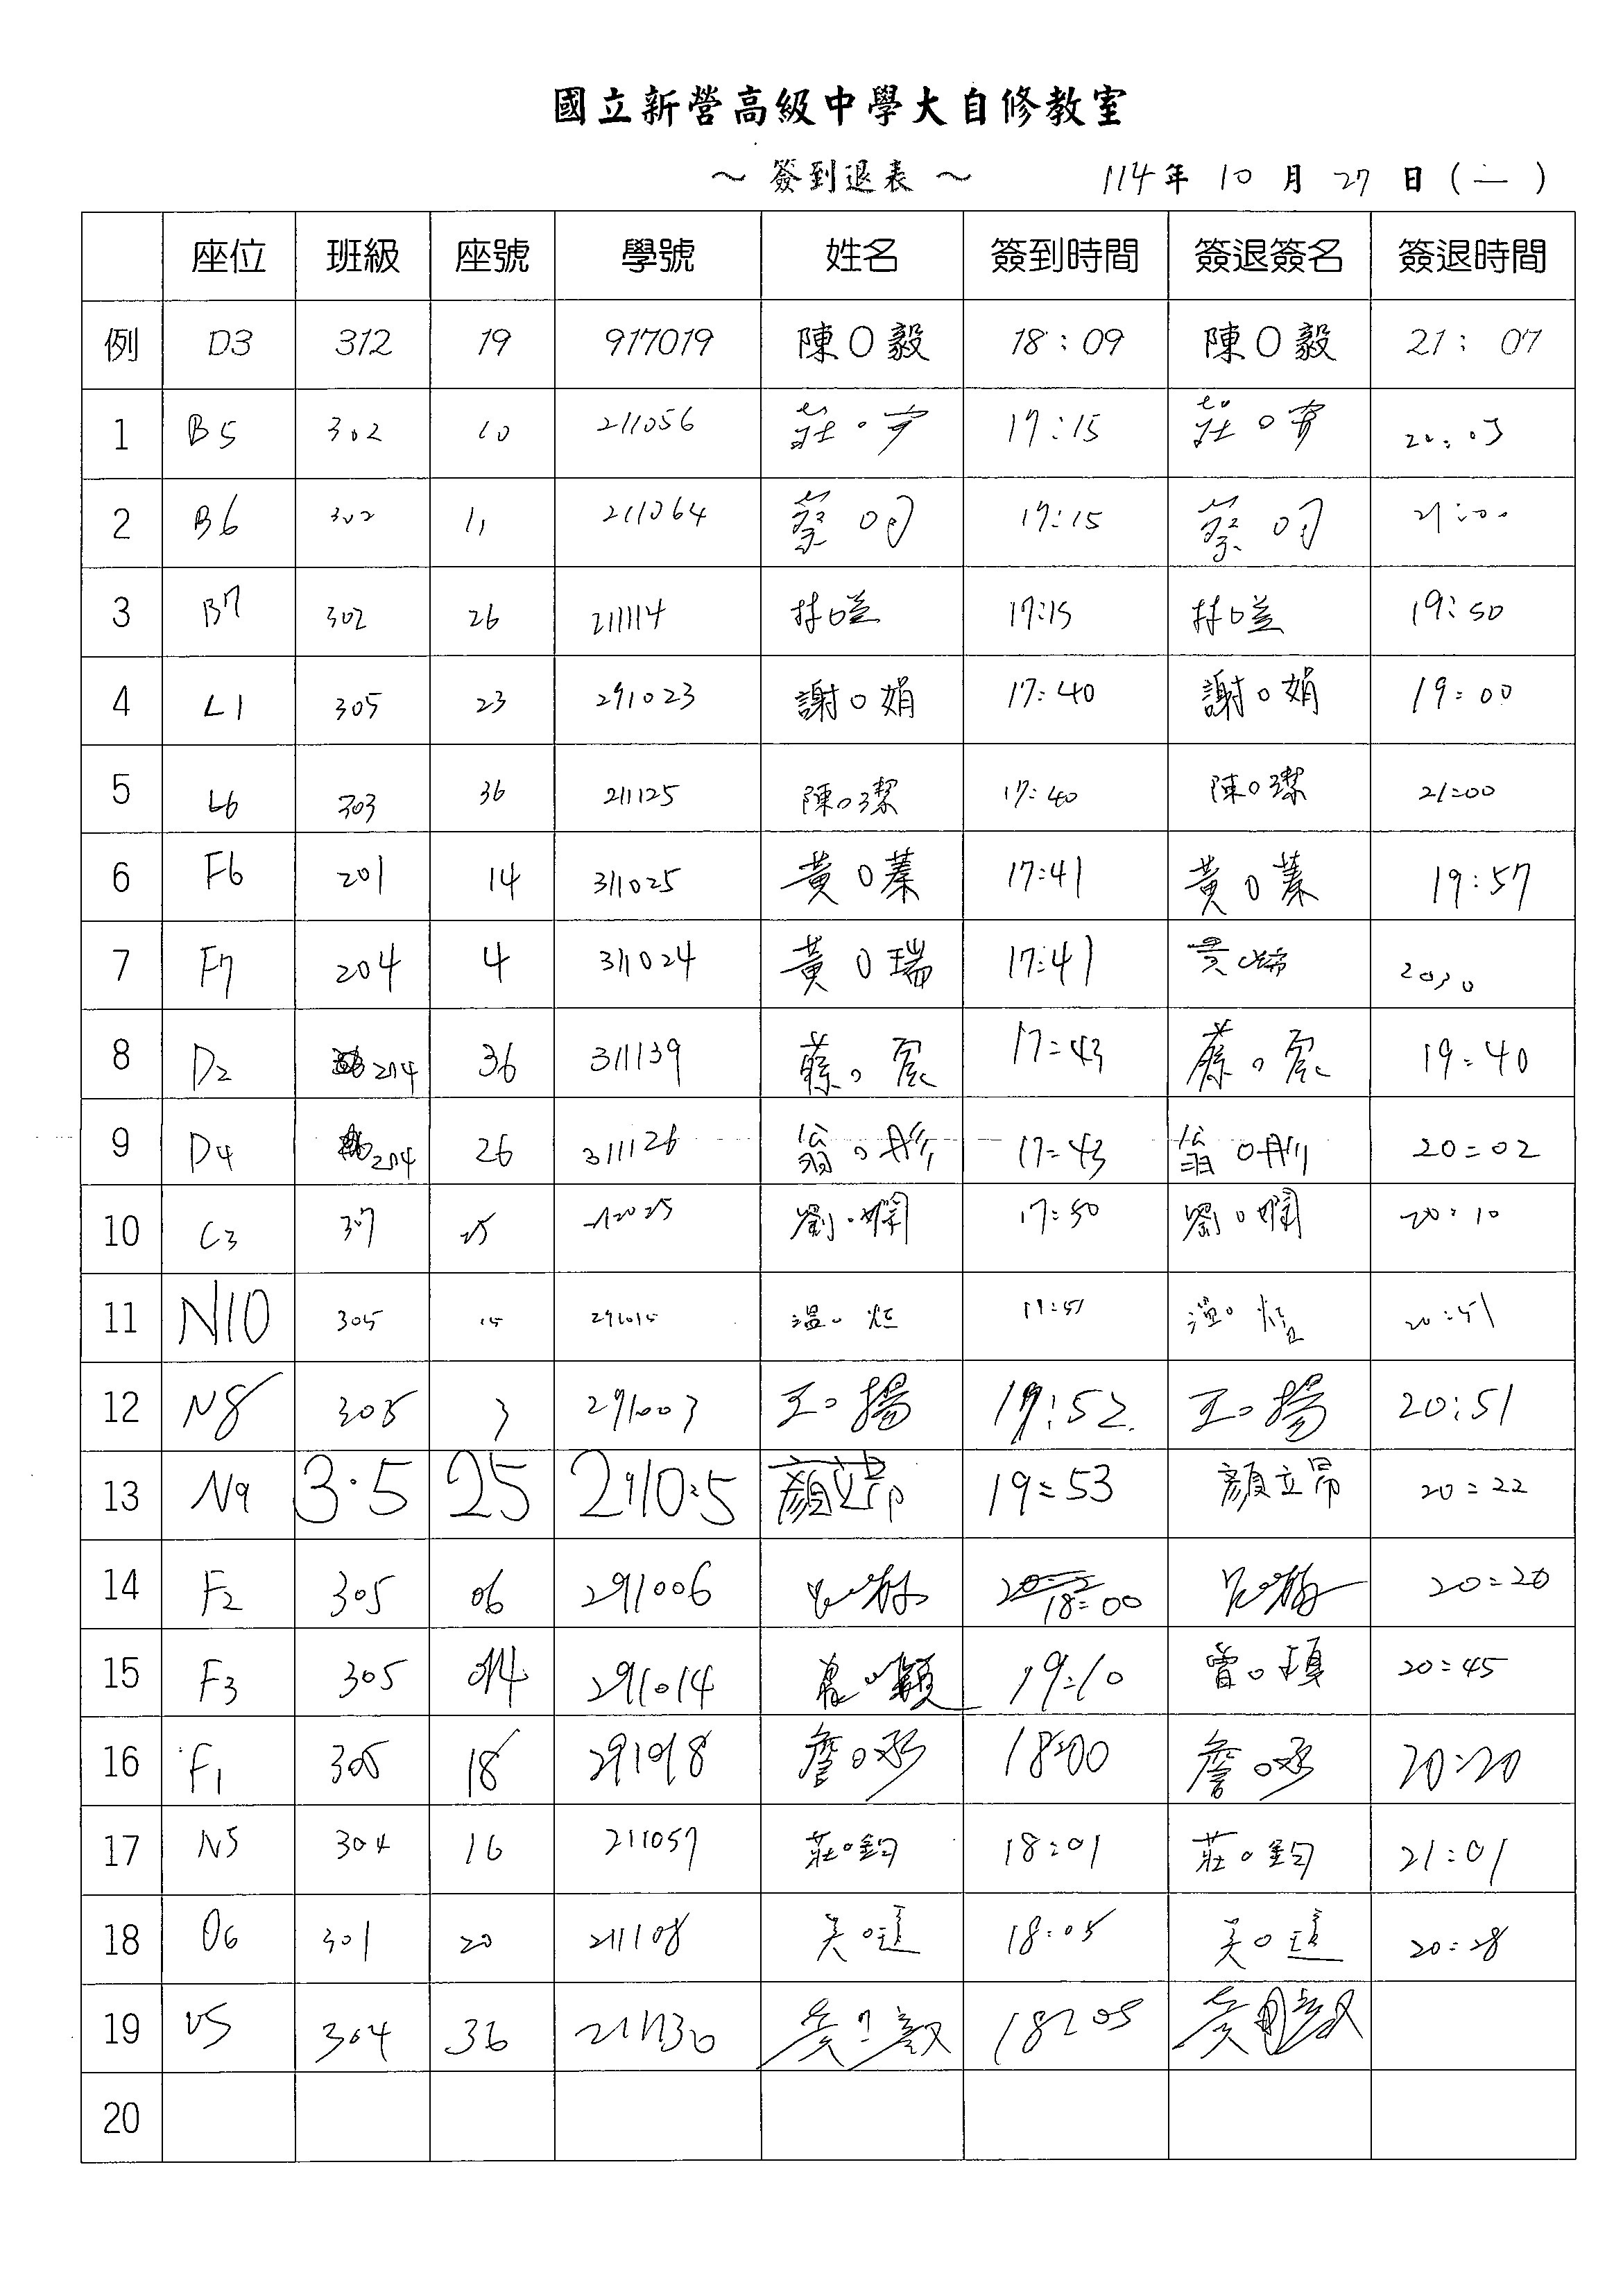 國立新營高級中學大自修教室
～ 簽到退表 ～ 114年 10 月 27 日 (一)
座位 班級 座號 學號 姓名 簽到時間 簽退簽名 簽退時間
例 D3 312 19 917019 陳O毅 18:09 陳O毅 21:07
1 B5 302 10 211056 莊O 17:15 莊O 20:05
2 B6 302 11 211064 蔡O 17:15 蔡O 21:00
3 B7 302 26 211114 林O益 17:15 林O益 19:50
4 L1 305 23 291023 謝O娟 17:40 謝O娟 19:00
5 L6 303 36 211125 陳O潔 17:40 陳O潔 21:00
6 F6 201 14 311025 黃O蓁 17:41 黃O蓁 19:57
7 F7 204 4 311024 黃O瑞 17:41 黃O瑞
8 D2 204 36 311139 蘇O宸 17:43 蘇O宸 19:40
9 D4 204 26 311126 翁O彤 17:43 翁O彤 20:02
10 C3 307 25 劉O嫻 17:50 劉O嫻 20:10
11 N10 305 15 291015 溫O 17:51 溫O 20:51
12 N8 305 3 291003 王O揚 20:51 王O揚
13 N9 305 25 顏立昂 19:53 顏立昂 20:22
14 F2 305 06 291006 18:00 20:20
15 F3 305 014 291014 曾O穎 19:10 曾O穎 20:45
16 F1 305 18 291018 詹O丞 18:00 詹O丞 20:20
17 N5 304 16 211057 莊O鈞 18:01 莊O鈞 21:01
18 O6 301 20 211108 吳O 18:05 吳O 20:28
19 304 36 211130 18:05
20